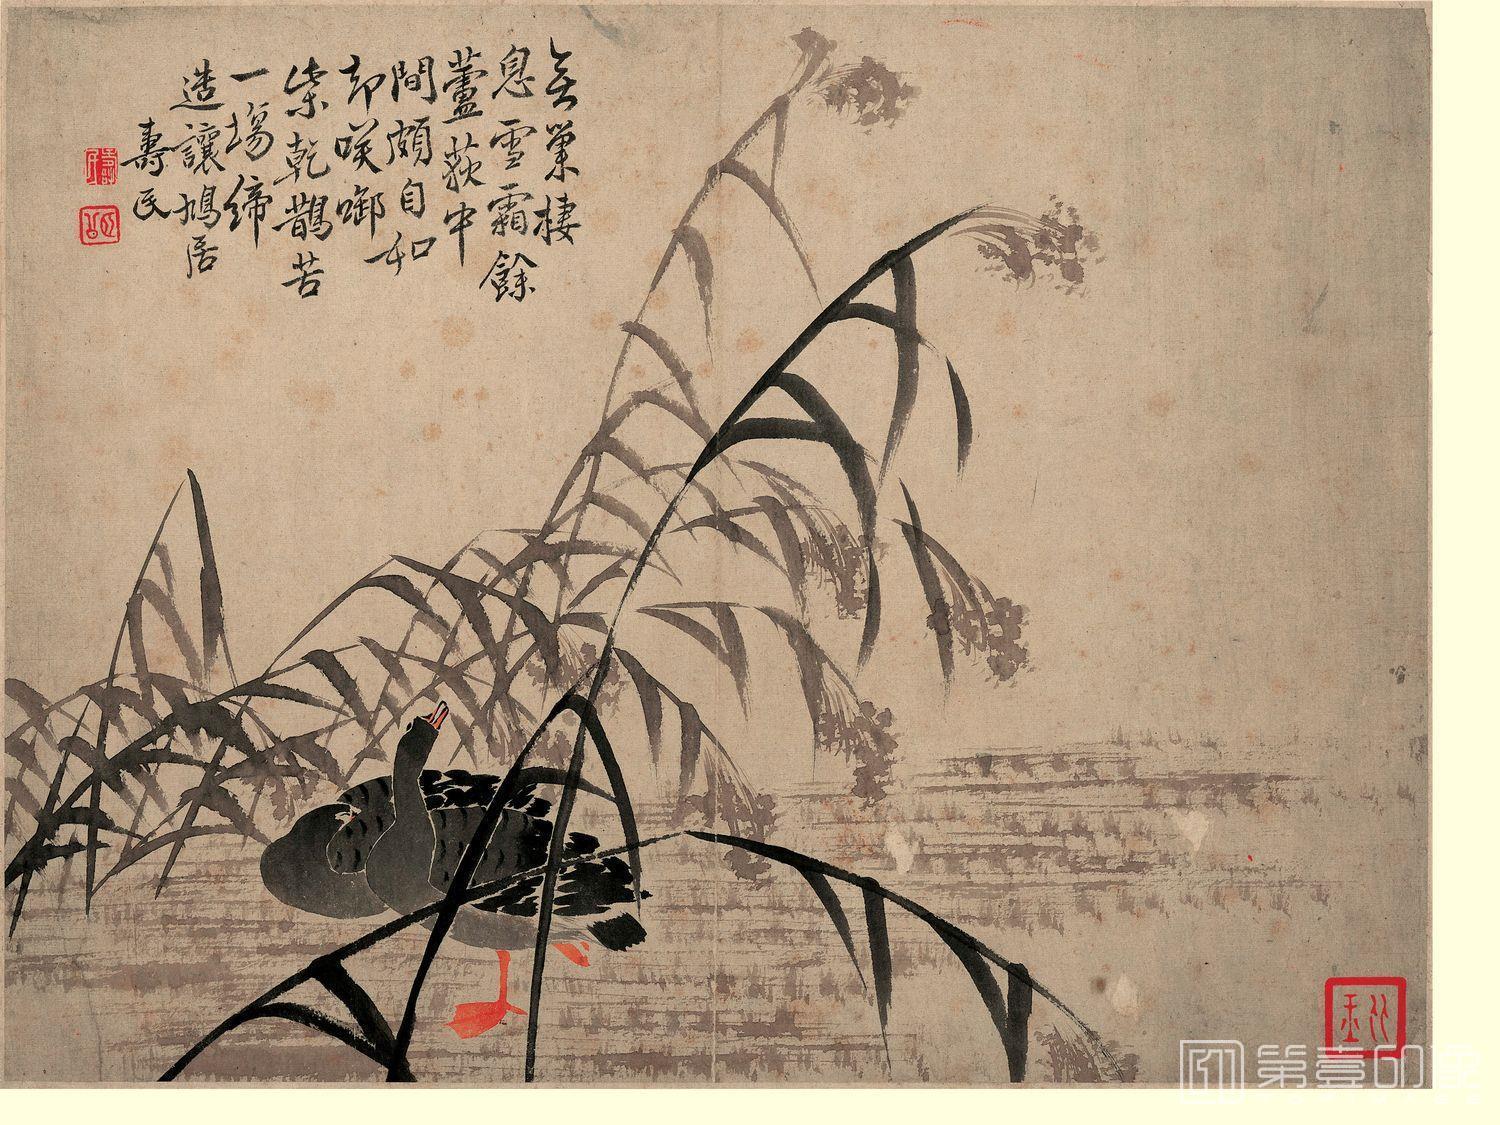 無巢棲
息雪霜餘
蘆荻中
間頗自如
却咲啣
柴乾鵲苦
一場締
造讓鳩居
壽民
第壹印象